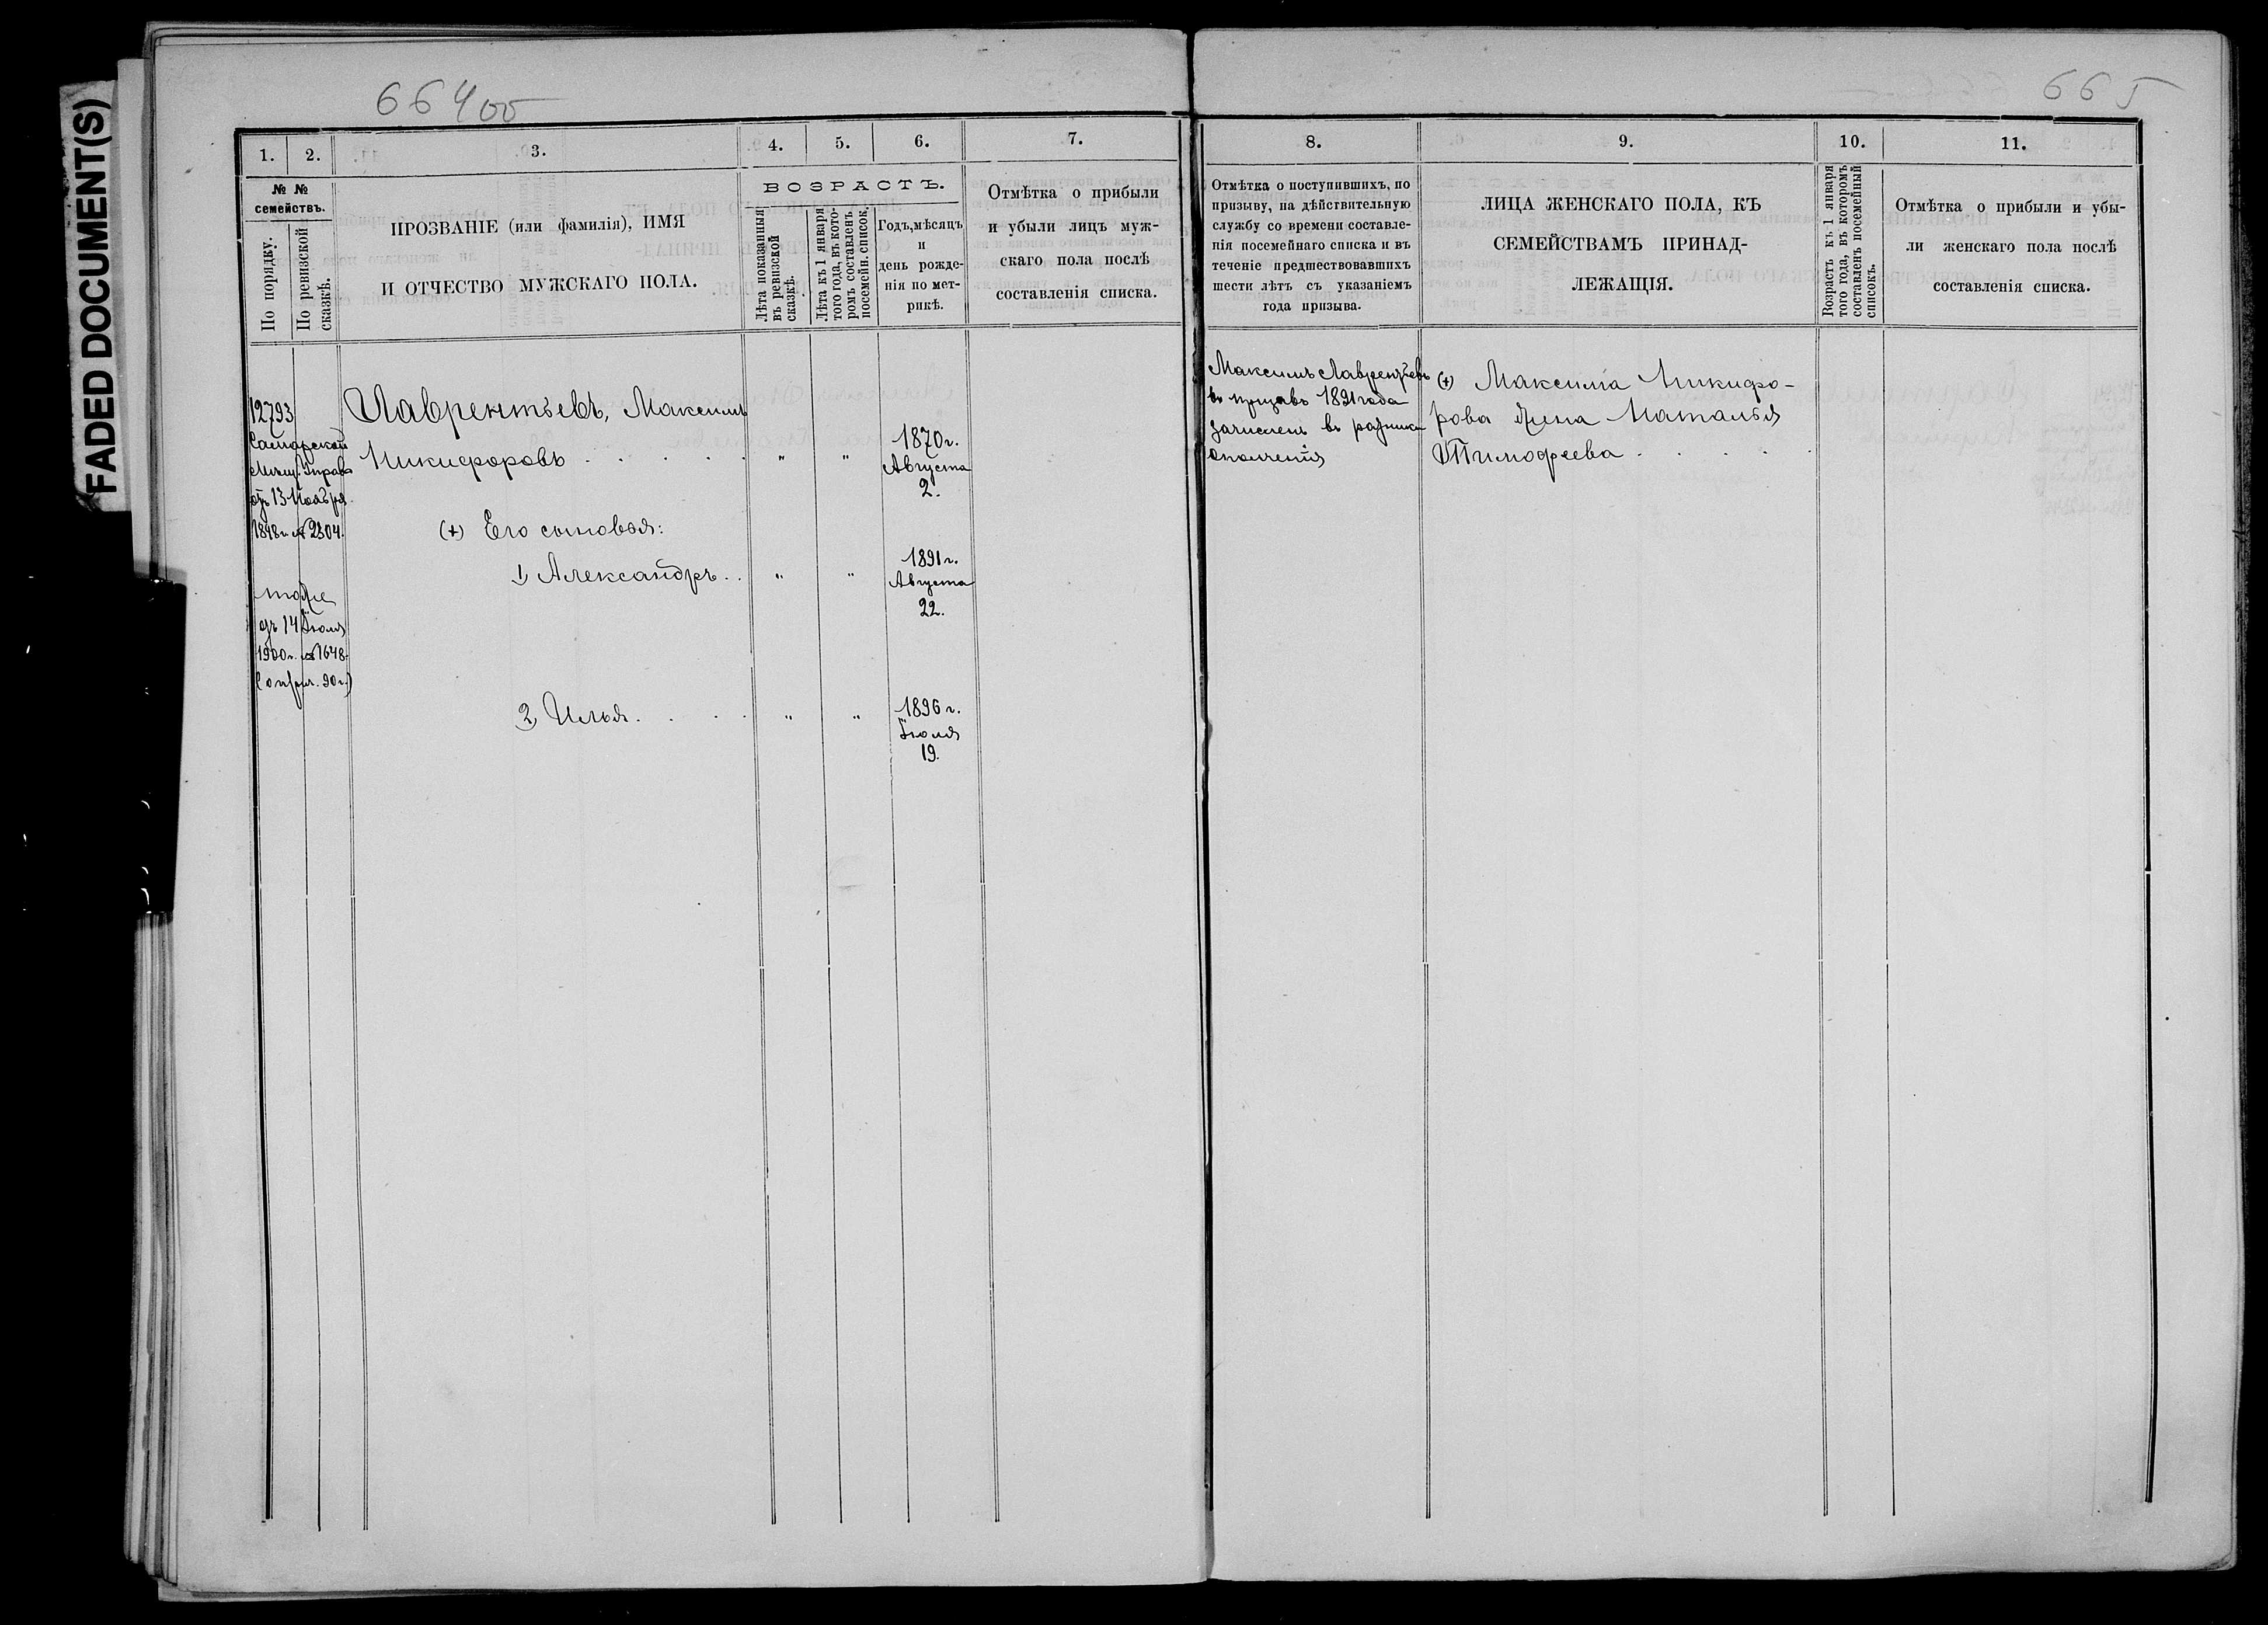 FADED DOCUMENT(S)
664об
665
1.
2.
3.
4.
5.
6.
7.
8.
9.
10.
11.
№ №
семействъ.
По порядку.
По ревизской
сказкѣ.
ПРОЗВАНІЕ (или фамилія), ИМЯ
И ОТЧЕСТВО МУЖСКАГО ПОЛА.
ВОЗРАСТЪ.
Лѣта показанныя
въ ревизской
сказкѣ.
Лѣта къ 1 января
того года, въ кото-
ромъ составленъ
посемейн. список.
Годъ, мѣсяцъ
и
день рожде-
нія по мет-
рикѣ.
Отмѣтка о прибыли
и убыли лицъ муж-
скаго пола послѣ
составленія списка.
Отмѣтка о поступившихъ, по
призыву, на дѣйствительную
службу со времени составле-
нія посемейнаго списка и въ
теченіе предшествовавшихъ
шести лѣтъ съ указаніемъ
года призыва.
ЛИЦА ЖЕНСКАГО ПОЛА, КЪ
СЕМЕЙСТВАМЪ ПРИНАД-
ЛЕЖАЩІЯ.
Возрастъ къ 1 января
того года, въ которомъ
составленъ посемейный
списокъ.
Отмѣтка о прибыли и убы-
ли женскаго пола послѣ
составленія списка.
12793
Самарской
Мѣщ. Управ
отъ 13 Ноября
1898 г. № 2304.
тоже
отъ 14 Іюля
1900 г. № 1648.
Лаврентьевъ, Максимъ
Никифоровъ . . . . . " "
1870 г.
Августа
2.
(+) Его сыновья:
1, Александръ . . " "
1891 г.
Августа
22.
2, Илья . . . . " "
1896 г.
Іюля
19.
Максимъ Лаврентьевъ
въ призывъ 1891 года
зачисленъ въ ратники
ополченія
(+) Максима Никифо-
рова жена Наталья
Тимофеева . . . . .